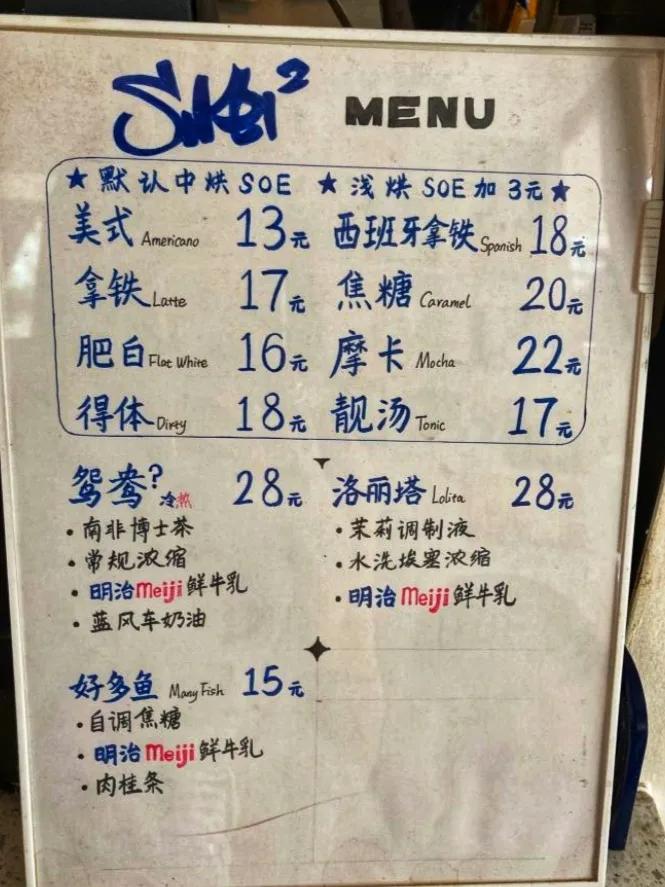 MENU
★ 默认中烘 SOE ★ 浅烘 SOE 加 3元 ★
美式 Americano 13元 西班牙拿铁 Spanish 18元
拿铁 Latte 17元 焦糖 Caramel 20元
肥白 Flat White 16元 摩卡 Mocha 22元
得体 Dirty 18元 靓汤 Tonic 17元
鸳鸯? 冷热 28元
• 南非博士茶
• 常规浓缩
• 明治 Meiji 鲜牛乳
• 蓝风车奶油
洛丽塔 Lolita 28元
• 茉莉调制液
• 水洗埃塞浓缩
• 明治 Meiji 鲜牛乳
好多鱼 Many Fish 15元
• 自调焦糖
• 明治 Meiji 鲜牛乳
• 肉桂条